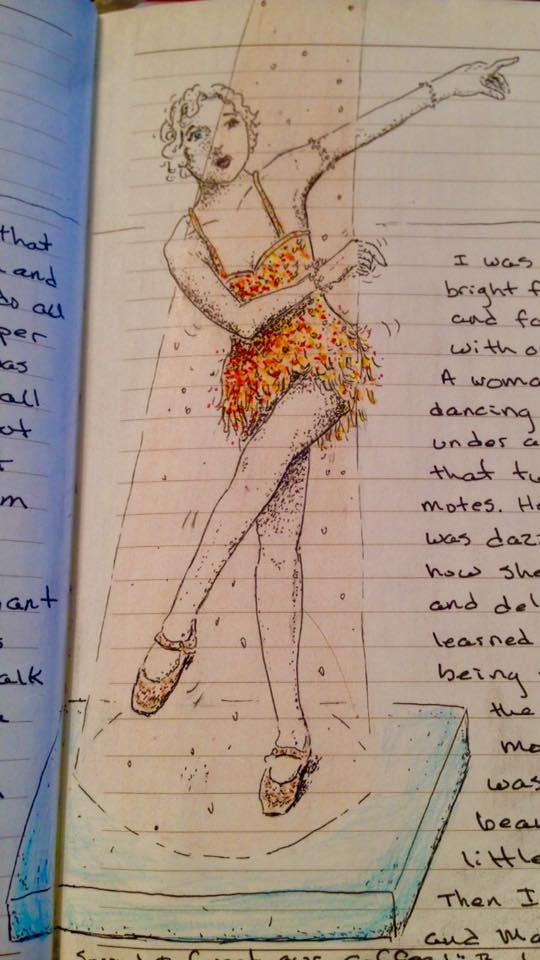 that
and
do all
per
as
all
ot
m
cant
s
alk
I was
bright f
and fo
with o
A woma
dancing
under a
that tw
motes. He
was dazz
how she
and del
learned
being
the
mo
was
beau
little
Then I
and Ma